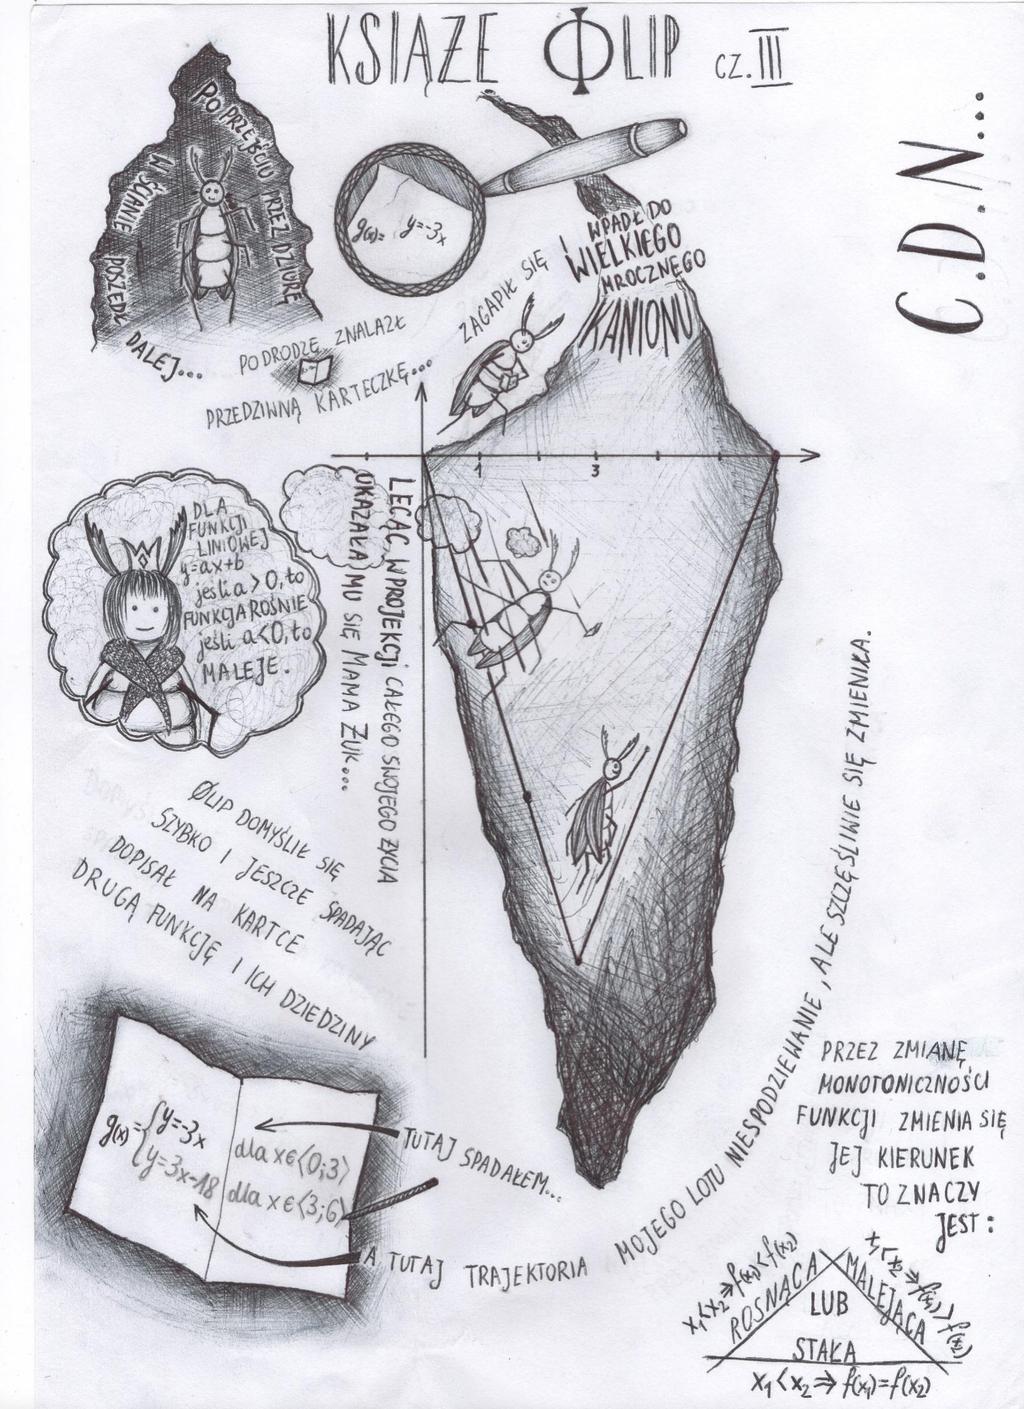 KSIĄŻE ΦLIP CZ. III
PO PRZEJŚCIU PRZEZ DZIURĘ
W ŚCIANIE POSZEDŁ
DALEJ...
PO DRODZE ZNALAZŁ
PRZEDZIWNĄ KARTECZKĘ...
g(x)= y=-3x
ZAGAPIŁ SIĘ
I WPADŁ DO
WIELKIEGO
MROCZNEGO
KANIONU
1 3
LECĄC, W PROJEKCJI CAŁEGO SWOJEGO ŻYCIA
UKAZAŁA MU SIĘ MAMA ŻUK...
DLA
FUNKCJI
LINIOWEJ
y=ax+b
jeśli a>0, to
FUNKCJA ROŚNIE
jeśli a<0, to
MALEJE.
ΦLIP DOMYŚLIŁ SIĘ
SZYBKO I JESZCZE SPADAJĄC
DOPISAŁ NA KARTCE
DRUGĄ FUNKCJĘ I ICH DZIEDZINY
g(x)={y=-3x dla x∈⟨0;3⟩
{y=3x-18 dla x∈⟨3;6⟩
TUTAJ SPADAŁEM...
A TUTAJ TRAJEKTORIA MOJEGO LOTU NIESPODZIEWANIE, ALE SZCZĘŚLIWIE SIĘ ZMIENIŁA.
PRZEZ ZMIANĘ
MONOTONICZNOŚCI
FUNKCJI ZMIENIA SIĘ
JEJ KIERUNEK
TO ZNACZY
JEST:
x1<x2⇒f(x1)<f(x2)
ROSNĄCA
LUB
MALEJĄCA
x1<x2⇒f(x1)>f(x2)
STAŁA
x1<x2⇒f(x1)=f(x2)
C.D.N...